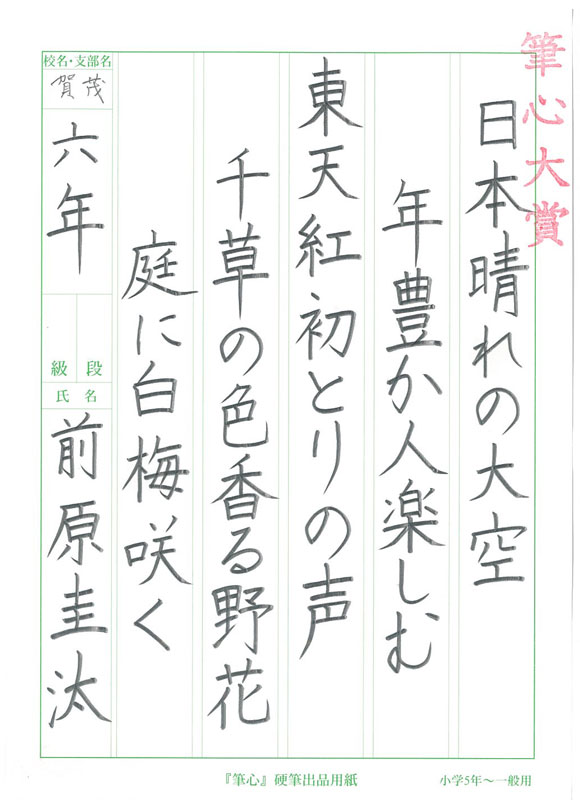 筆心大賞
日本晴れの大空
年豊か人楽しむ
東天紅初とりの声
千草の色香る野花
庭に白梅咲く
校名・支部名
賀茂
六年
段級
氏名
前原圭汰
『筆心』硬筆出品用紙
小学5年～一般用